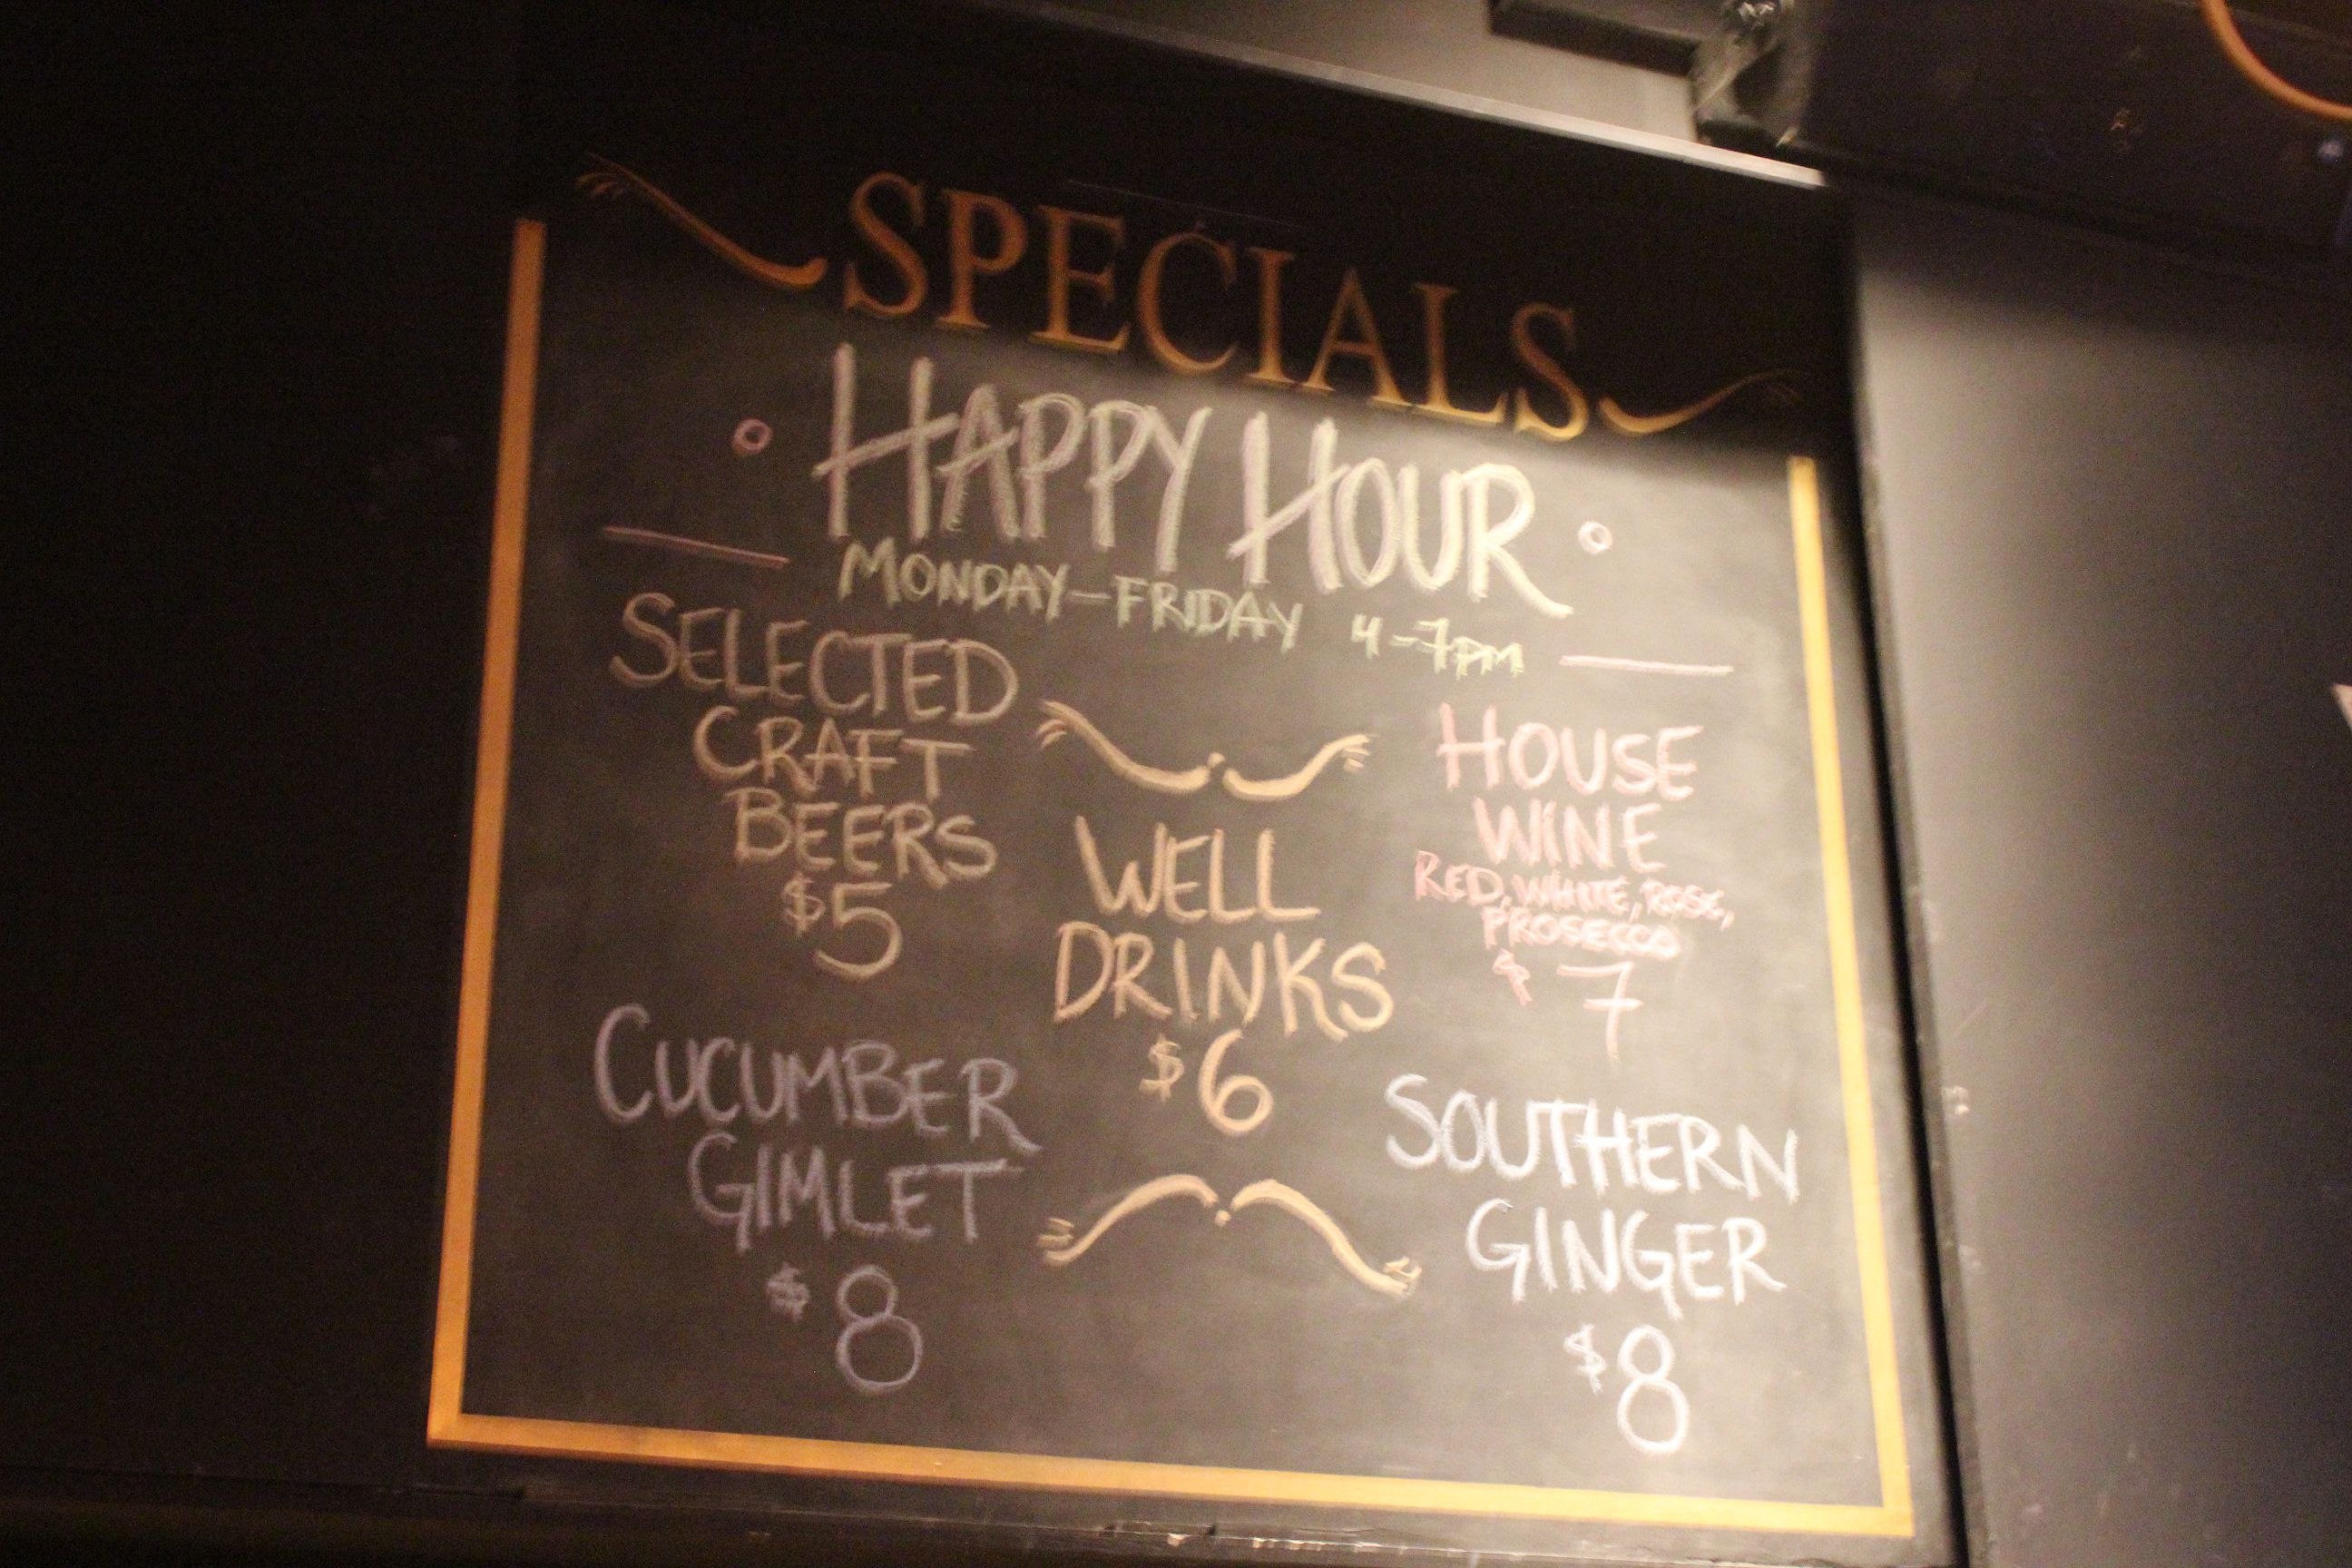 SPECIALS
HAPPY HOUR
MONDAY-FRIDAY 4-7PM
SELECTED
CRAFT
BEERS
$5
WELL
DRINKS
$6
HOUSE
WINE
RED, WHITE, ROSE,
PROSECCO
$7
CUCUMBER
GIMLET
$8
SOUTHERN
GINGER
$8